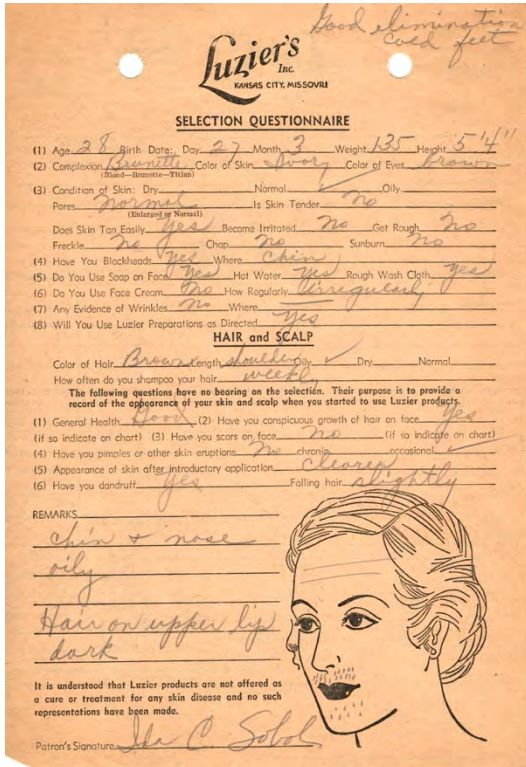 Good elimination
cold feet
Luzier's
Inc.
KANSAS CITY, MISSOURI
SELECTION QUESTIONNAIRE
(1) Age 28 Birth Date: Day 27 Month 3 Weight 135 Height 5'4"
(2) Complexion Brunette Color of Skin Ivory Color of Eyes Brown
(Blond—Brunette—Titian)
(3) Condition of Skin: Dry Normal ✓ Oily
Pores Normal Is Skin Tender No
(Enlarged or Normal)
Does Skin Tan Easily Yes Become Irritated No Get Rough No
Freckle No Chap No Sunburn No
(4) Have You Blackheads Yes Where Chin
(5) Do You Use Soap on Face Yes Hot Water yes Rough Wash Cloth yes
(6) Do You Use Face Cream No How Regularly Irregularly
(7) Any Evidence of Wrinkles No Where
(8) Will You Use Luzier Preparations as Directed Yes
HAIR and SCALP
Color of Hair Brown Length shoulder Oily ✓ Dry Normal
How often do you shampoo your hair weekly
The following questions have no bearing on the selection. Their purpose is to provide a
record of the appearance of your skin and scalp when you started to use Luzier products.
(1) General Health Good (2) Have you conspicuous growth of hair on face Yes
(if so indicate on chart) (3) Have you scars on face No (if so indicate on chart)
(4) Have you pimples or other skin eruptions No chronic occasional ✓
(5) Appearance of skin after introductory application Clearer
(6) Have you dandruff Yes Falling hair slightly
REMARKS
chin + nose
oily
Hair on upper lip
dark
It is understood that Luzier products are not offered as
a cure or treatment for any skin disease and no such
representations have been made.
Patron's Signature Ida C. Sobol